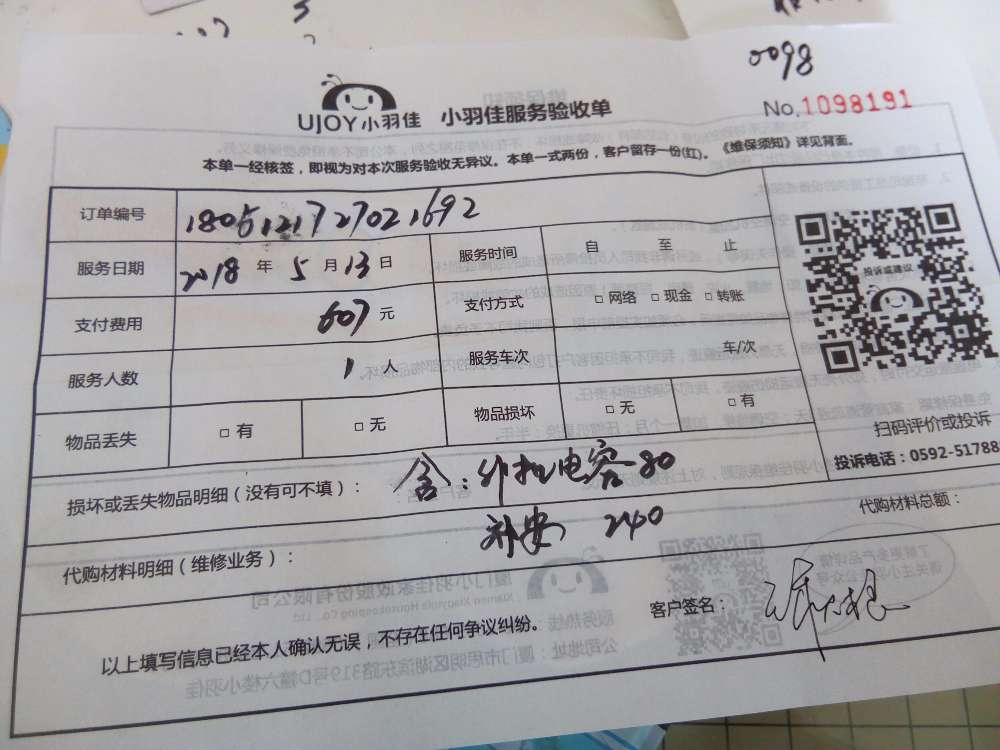 0098
UJOY小羽佳 小羽佳服务验收单
No.1098191
本单一经核签，即视为对本次服务验收无异议。本单一式两份，客户留存一份(红)。《维保须知》详见背面。
订单编号 1805121727021692
服务日期 2018 年 5 月 13 日 服务时间 自 至 止
支付费用 607 元 支付方式 □ 网络 □ 现金 □ 转账
服务人数 1 人 服务车次 车/次
物品丢失 □ 有 □ 无 物品损坏 □ 无 □ 有
投诉或建议
扫码评价或投诉
投诉电话：0592-51788
损坏或丢失物品明细（没有可不填）： 含：外机电容80
代购材料总额：
代购材料明细（维修业务）： 240
客户签名：
以上填写信息已经本人确认无误，不存在任何争议纠纷。